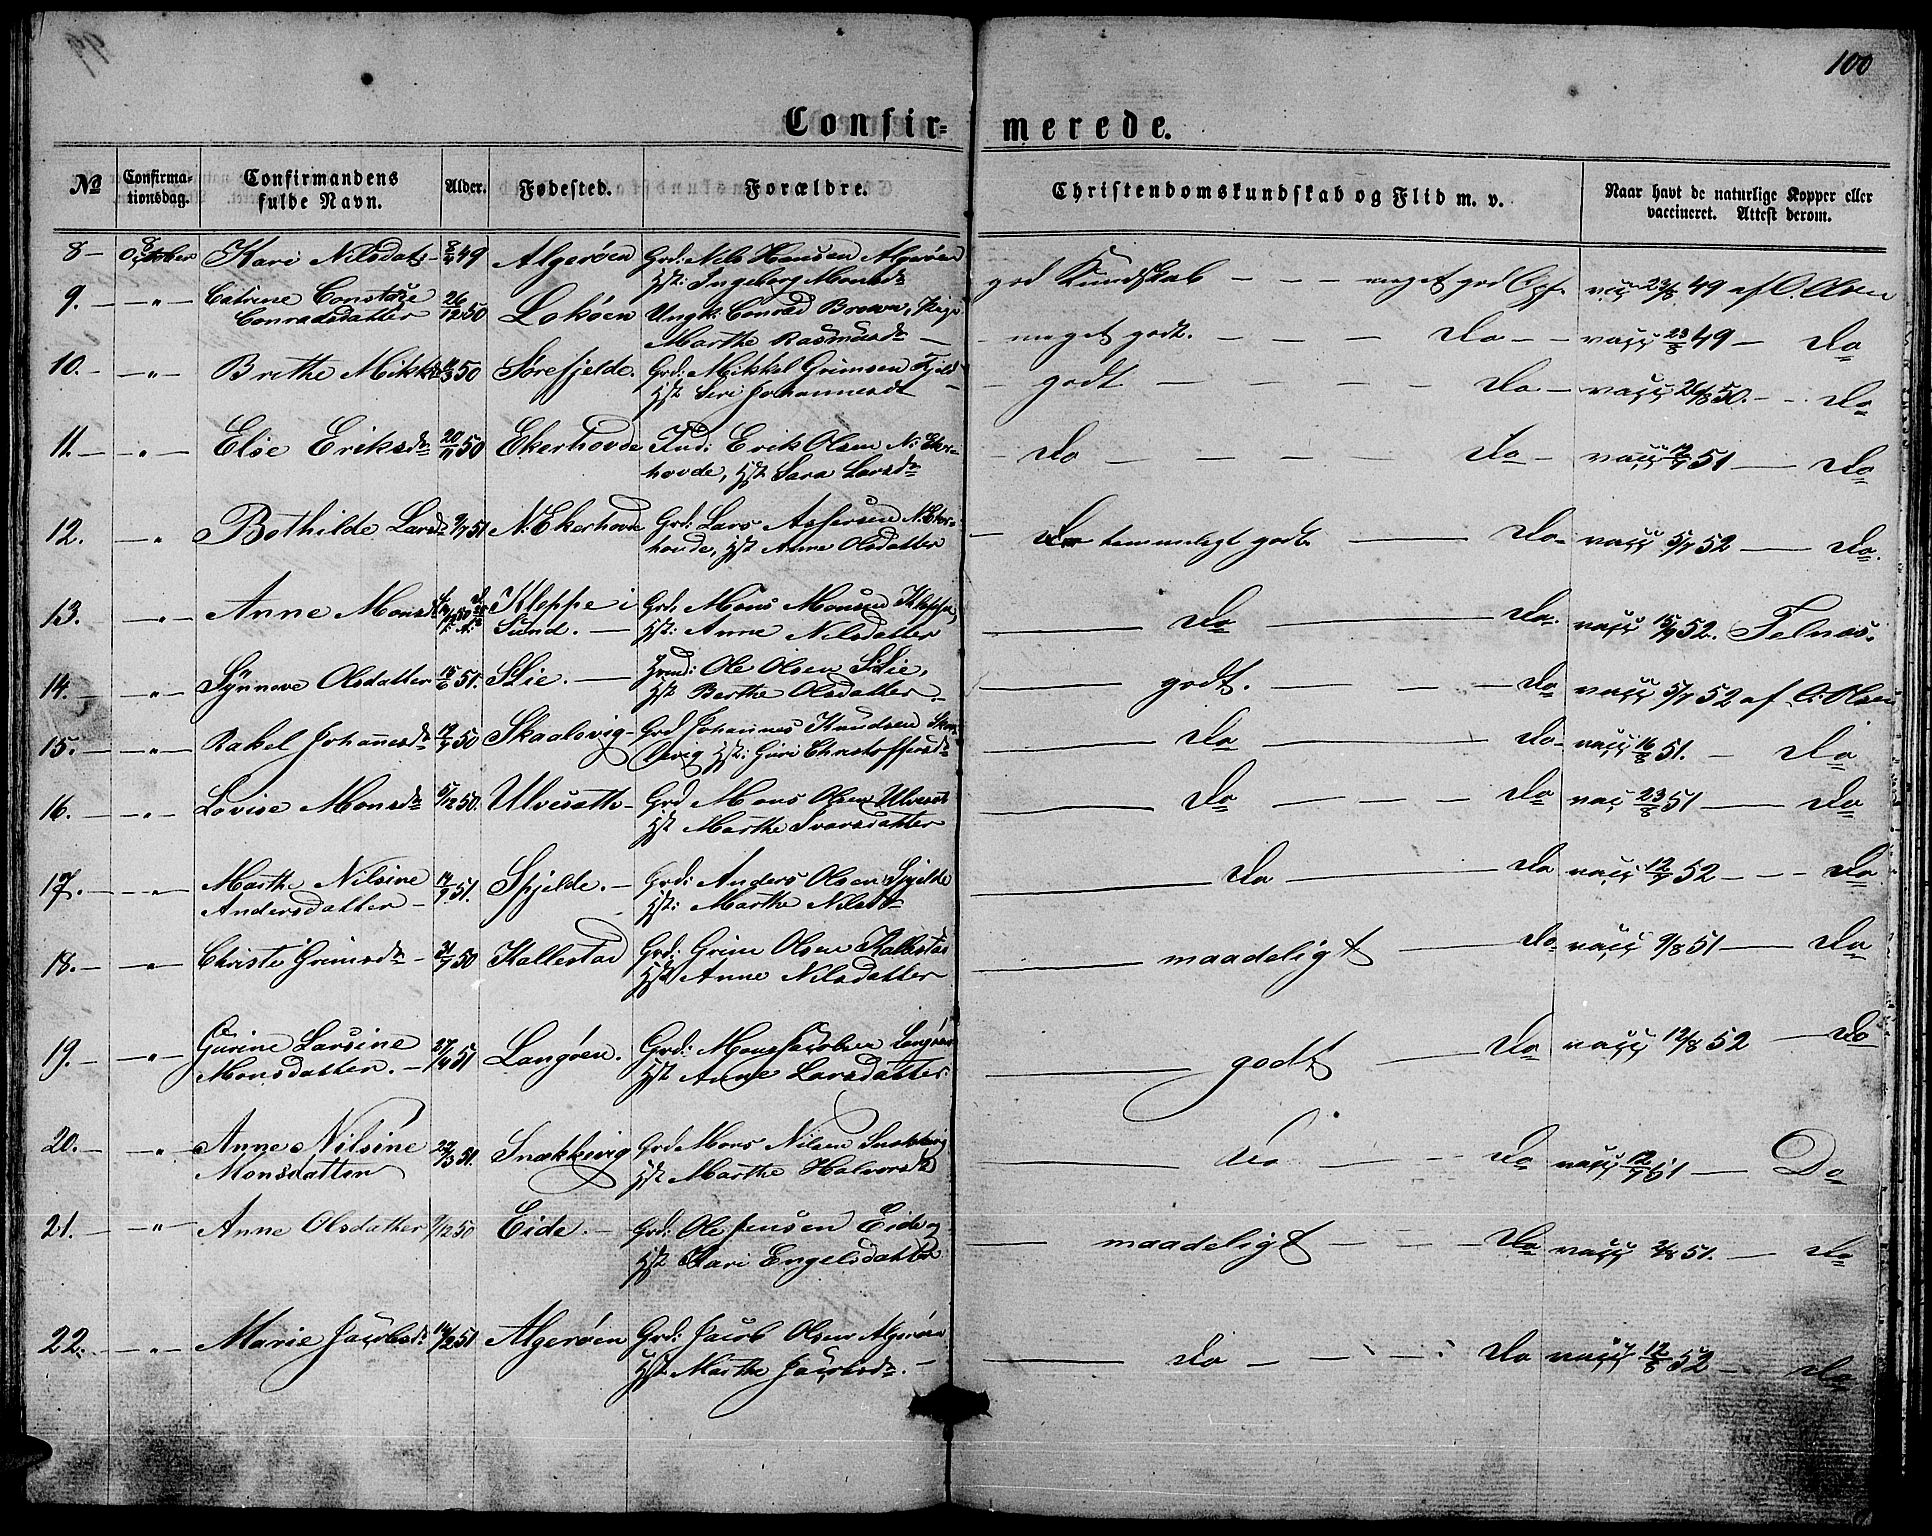 100
Confir= merede.
No
Confirma-
tionsdag.
Confirmandens
fulde Navn.
Alder.
Fødested.
Forældre.
Christendomskundskab og Flid m. v.
Naar havt de naturlige Kopper eller
vaccineret. Attest derom.
8 — 8 October Kari Nilsdatr — 49 Algerøen Grd: Nils Hansen Algerøen
Hst: Ingeborg Monsdr
god Kundskab — — — meget god Opf. vacc 23/8 49 af O. Olsen
9. — " — Catrine
Conradsdatter 26/12 50 Lokøen Ungk. Conrad Brown, Pige
Marthe Rasmusdr —
meget godt. — — — Do — — vacc 23/8 49 — Do
10. — " — Brithe 50 Sørefjelde. Grd: Mikkel Grimsen Fjeld
Hst Seri Johannesd
— godt — — — — Do. — vacc 26/8 50. — Do
11. — " — Else Eriksdr 20/11 50 Ekerhovde Ind: Erik Olsen N: Eker=
hovde, Hst Sara Larsdr
— Do — — — — — Do — vacc 12/7 51 — Do
12. — " Bothilde Larsdr 9/7 51 N: Ekerhovde Grd: Lars N: Eker=
hovde, Hst Anne Olsdatter
— temmeligt godt. — Do — vacc 5/7 52 — Do.
13. — " — Anne Monsdr Kleppe i
Sund. — Grd: Mons Monsen Kleppe,
Hst: Anne Nilsdatter
— Do — Do. vacc 15/9 52. Felnæs.
14. — " — Synneve Olsdatter 15/6 51. SLie. — Ole Olsen SLie,
Hst Berthe Olsdatter.
— godt. — — — Do vacc 5/7 52 af O: Olsen
15. — " — Rakel Johanesdr 50 Skaalevig — Grd Johannes Knudsen Skaa=
levig Hst: Guri Christoffersdr
— Do — Do — vacc 16/8 51. — Do
16. — " — Lovise Monsdr 5/12 50. Ulvesæth — Grd Mons Olsen Ulvesæt
Hst Marthe Ivarsdatter
— Do — — — — Do vac 23/8 51 — Do
17. — " — Marthe Nilsine
Andersdatter — 51. Spjelde. — Grd: Anders Olsen Spjelde
Hst: Marthe Nilsdr
— Do — Do vacc 12/7 52 — — Do
18. — " — Christi Grimsdr — 50 Kallestad Grd: Grim Olsen Kallestad
Hst Anne Nilsdatter
— maadeligt — Do — vacc 9/8 51 — Do
19. — " — Gurine Larsine
Monsdatter. — 27/4 51 Langøen. Grd: Mons Jacobsen Langøen
Hst Anne Larsdatter.
— godt — Do vacc 12/8 52 — Do
20. — " — Anne Nilsine
Monsdatter 51. Snækkevig Grd Mons Nilsen Snækkevig
Hst Marthe Halvorsdr
— Do — — — Do vacc 12/7 51 — Do
21. — " — Anne Olsdatter 9/12 50 Eide. — Grd: Ole Jensen Eide og
Hst Kari Engelsdatter
— maadeligt — — — Do vacc 2/8 51. — Do
22. — " — Marie Jacobsdr 14/2 51 Algerøen Grd: Jacob Olsen Algerøen
Hst Marthe Jacobsdr. —
— Do — — — Do vacc 12/8 52 — Do